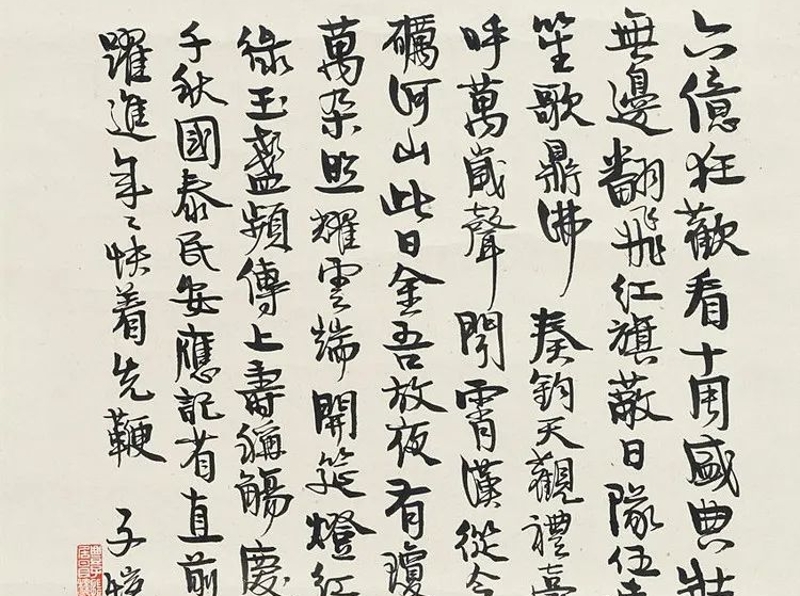 六億狂歡看十周盛典壯
無邊翻飛紅旗蔽日隊伍
笙歌鼎沸奏鈞天觀禮臺
呼萬歲聲聞霄漢從今
礪河山此日金吾放夜有瓊
萬朵照耀雲端開筵燈紅
綠玉盞頻傳上壽稱觴慶
千秋國泰民安應記省直前
躍進年〻快着先鞭 子愷